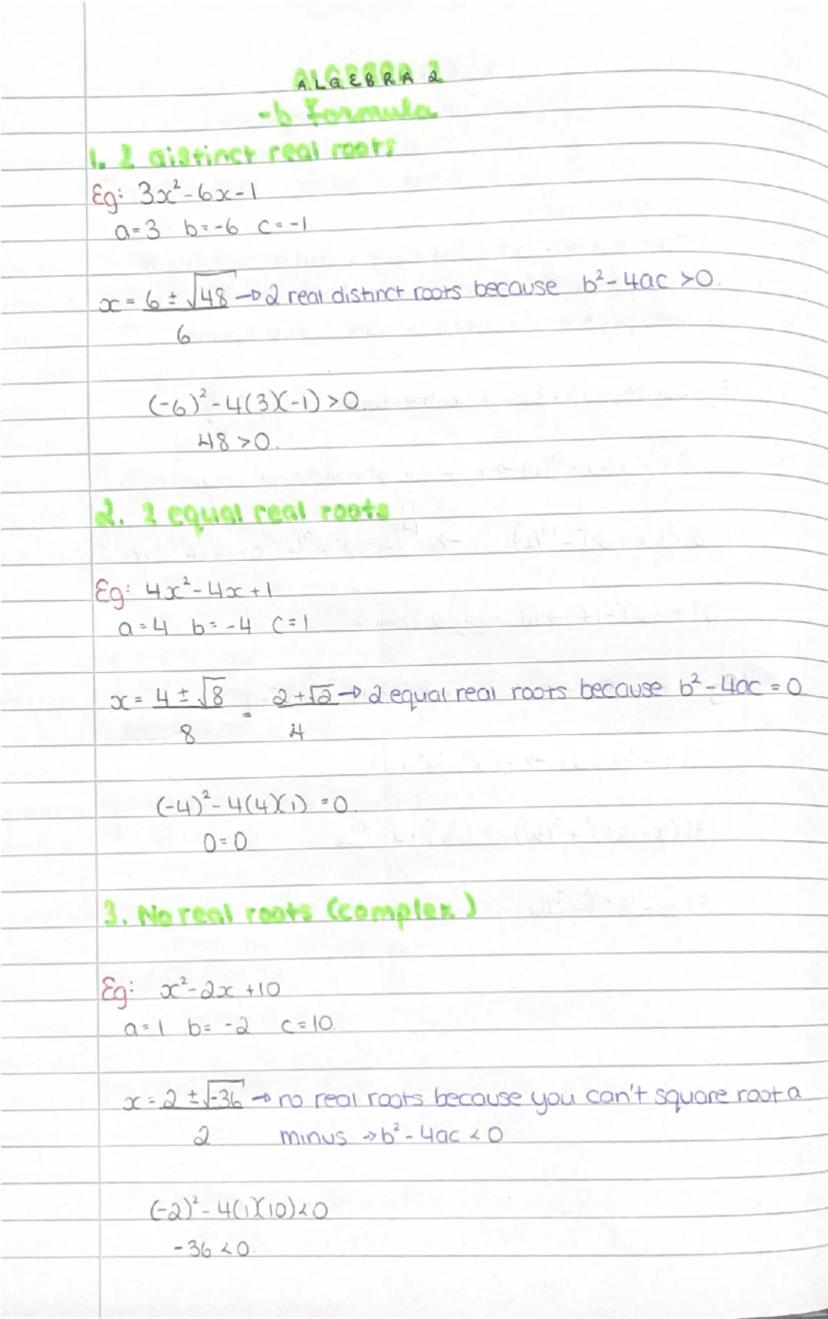 ALGEBRA 2
-b Formula
1. 2 distinct real roots
Eg: 3x² - 6x - 1
a=3 b=-6 c=-1
x = 6 ± √48 → 2 real distinct roots because b² - 4ac > 0.
6
(-6)² - 4(3)(-1) > 0
48 > 0.
2. 2 equal real roots
Eg: 4x² - 4x + 1
a=4 b=-4 c=1
x = 4 ± √8 = 2 + √2 → 2 equal real roots because b² - 4ac = 0
8 4
(-4)² - 4(4)(1) = 0.
0 = 0
3. No real roots (complex)
Eg: x² - 2x + 10
a=1 b=-2 c=10
x = 2 ± √-36 → no real roots because you can't square root a
2 minus → b² - 4ac < 0
(-2)² - 4(1)(10) < 0
-36 < 0.